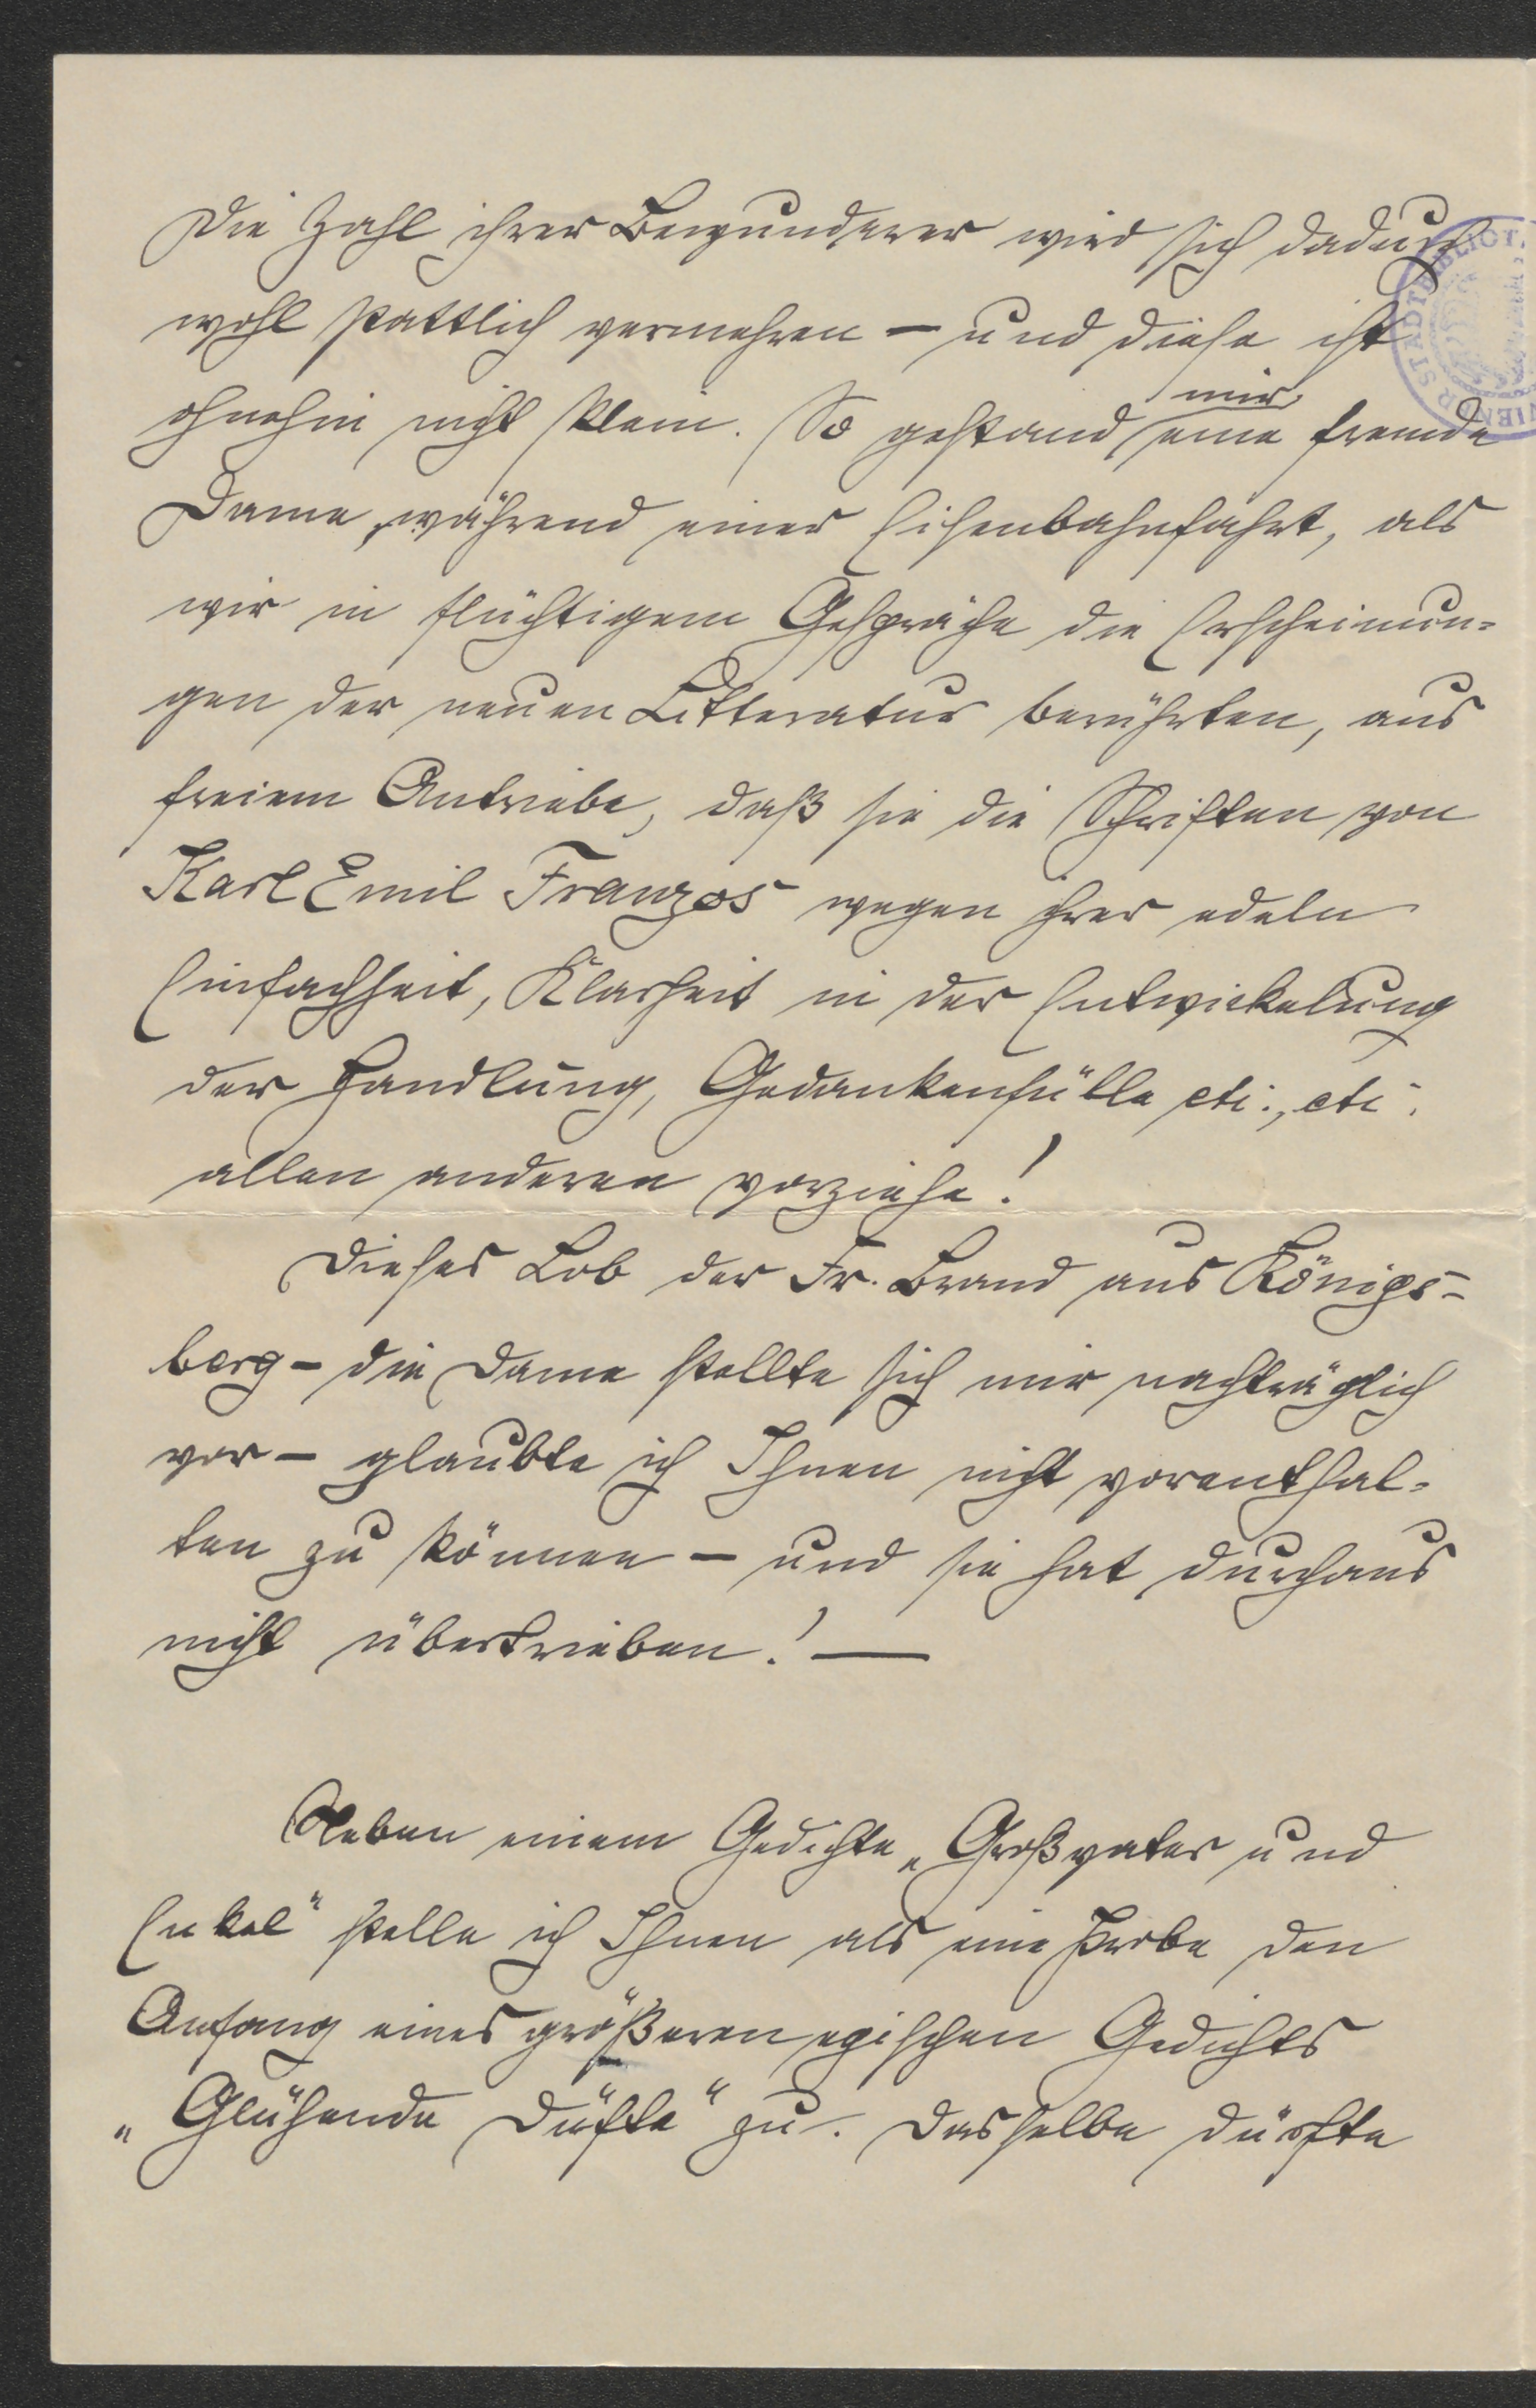 Die Zahl ihrer Bewunderer wird sich dadurch
wohl stattlich vermehren – und diese ist
ohnehin nicht klein. So gestand mir eine fremde
Dame, während einer Eisenbahnfahrt, als
wir in flüchtigem Gespräche die Erscheinun-
gen der neuen Litteratur berührten, aus
freiem Antriebe, daß sie die Schriften von
Karl Emil Franzos wegen ihrer edeln
Einfachheit, Klarheit in der Entwickelung
der Handlung, Gedankenfülle etc., etc.
allen anderen vorziehe!
Dieses Lob der Fr. Brand aus Königs-
berg – die Dame stellte sich mir nachträglich
vor – glaubte ich Ihnen nicht vorenthal-
ten zu können – und sie hat durchaus
nicht übertrieben! —
Neben einem Gedichte „Großvater und
Enkel“ stelle ich Ihnen als eine Probe den
Anfang eines größeren epischen Gedichts
„Glühende Düfte“ zu. Dasselbe dürfte